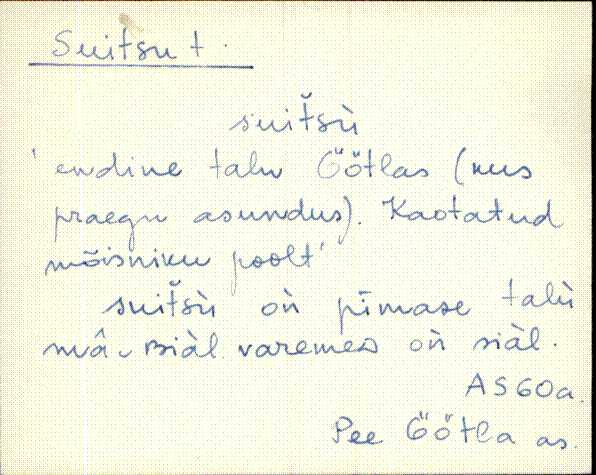 Suitsu t.
suit̆sù
'endine talu Göötlas (kus
praegu asundus). Kaotatud
mõisniku poolt'
suit̆sù oǹ pīmase talù
mâ, siàl varemes oǹ siàl.
AS60a.
Pee Göötla as.